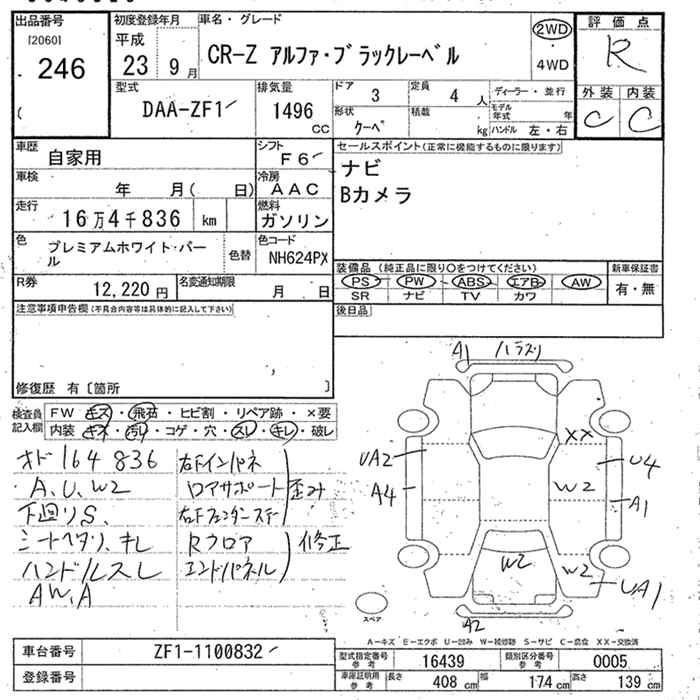 出品番号
[2060]
246
初度登録年月
平成
23 9月
車名・グレード
CR-Z アルファ・ブラックレーベル
2WD
4WD
評価点
R
外装 内装
C C
型式
DAA-ZF1
排気量
1496
CC
ドア 3
定員 4 人
形状 クーペ
積載 kg
ディーラー・並行
モデル年式 年
ハンドル 左・右
車歴 自家用
シフト F6
車検 年 月( 日)
冷房 AAC
走行 16万4千836 km
燃料 ガソリン
色 プレミアムホワイト・パール
色替
色コード NH624PX
R券 12,220円
名変通知期限 月 日
セールスポイント(正常に機能するものに限ります)
ナビ
Bカメラ
装備品(純正品に限り○をつけてください)
PS PW ABS エアB AW
SR ナビ TV カワ
新車保証書
有・無
後日品
注意事項申告欄(不具合内容等は具体的に記入して下さい)
修復歴 有〔箇所 〕
検査員記入欄
FW キズ・飛石・ヒビ割・リペア跡・×要
内装 キズ・汚レ・コゲ・穴・スレ・キレ・破レ
オド164836
A、U、W2
下回りS、
シートヘタリ、キレ
ハンドルスレ
AW、A
右Fインパネ
ロアサポート 歪み
右Fフェンダーステー
Rフロア 修正
エンドパネル
A1
UA2
A4
XX
U4
W2
A1
W2
W2
UA1
A2
スペア
A−キズ E−エクボ U−凹み W−補修跡 S−サビ C−腐食 XX−交換済
車台番号 ZF1-1100832
登録番号
型式指定番号 参考 16439
類別区分番号 参考 0005
車庫証明用 参考
長さ 408 cm
幅 174 cm
高さ 139 cm